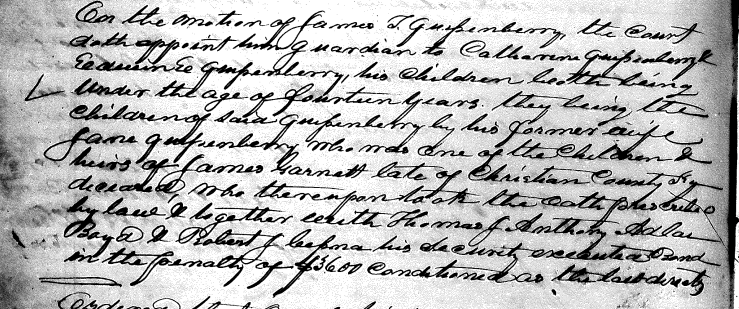 On the motion of James T. Quisenberry, the Court
doth appoint him guardian to Catharine Quisenberry &
Edwin E Quisenberry, his Children both being
under the age of fourteen Years. they being the
Children of said Quisenberry by his former wife
Jane Quisenberry who was one of the Children &
heirs of James Garnett late of Christian County Ky
deceased, who thereupon took the Oath prescribed
by law & together with Thomas J Anthony
Boyd & Robert J his security executed Bond
in the penalty of $3600 Conditioned as the law directs
Ordered that